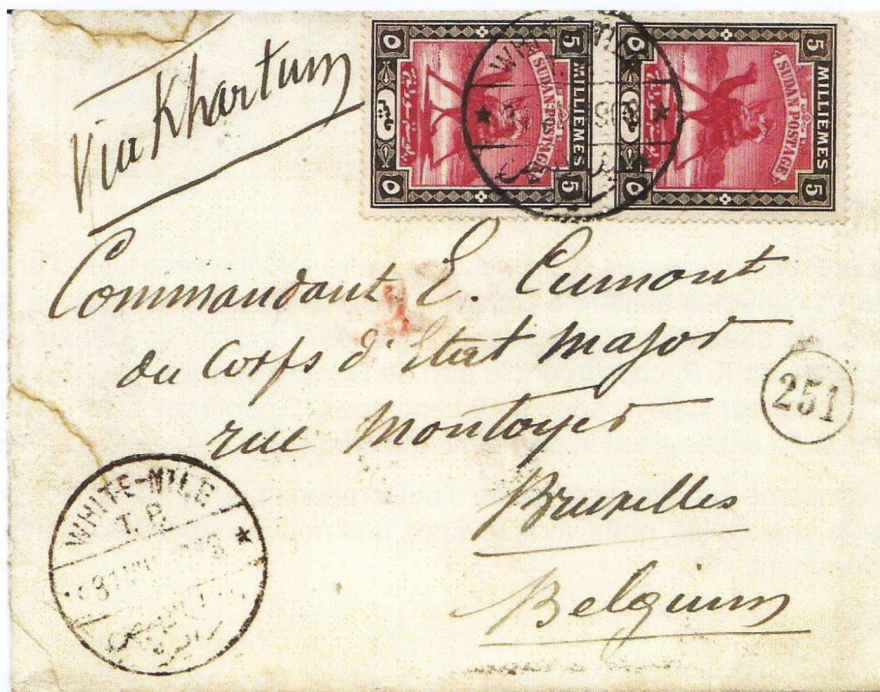 Via Khartum
5 5
MILLIEMES
SUDAN POSTAGE
٥ ٥
5 5
MILLIEMES
SUDAN POSTAGE
٥ ٥
Commandant E. Cumont
du Corps d'Etat Major
rue Montoyer
251
Bruxelles
Belgium
WHITE-NILE
T. P.